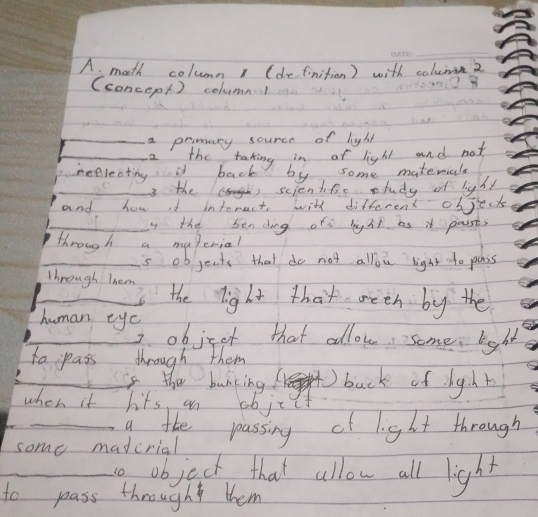 DATE:
A. math column 1 (definition) with column 2
(concept) column 1
1 primary source of light
2 the taking in of light and not
reflecting it back by some materials
3 the scientific study of light
and how it interacts with different objects
4 the bending of light as it passes
through a material
5 objects that do not allow light to pass
through them
6 the light that seen by the
human eye
7. object that allow some light
to pass through them
8 the buncing back of light
when it hits an object
9 the passing of light through
some material
10 object that allow all light
to pass through them